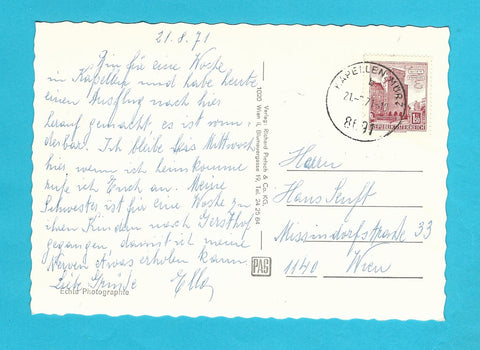 21.8.71
Bin für eine Woche
in Kapellen und habe heute
einen Ausflug nach hier
herauf gemacht, es ist wun-
derbar. Ich bleibe bis Mittwoch
hier, wenn ich heimkomme
rufe ich Euch an. Meine
Schwester ist für eine Woche zu
ihren Kindern nach Gersthof
gegangen, damit ich meine
Nerven etwas erholen kann.
Liebe Grüße Ella
Echte Photographie
Verlag: Richard Pietsch & Co. KG.
1030 Wien, Tel. 24 25 84
PAG
KAPELLEN, MÜRZ
8691
REPUBLIK ÖSTERREICH
Herrn
Hans
Missindorfstraße 33
1140 Wien